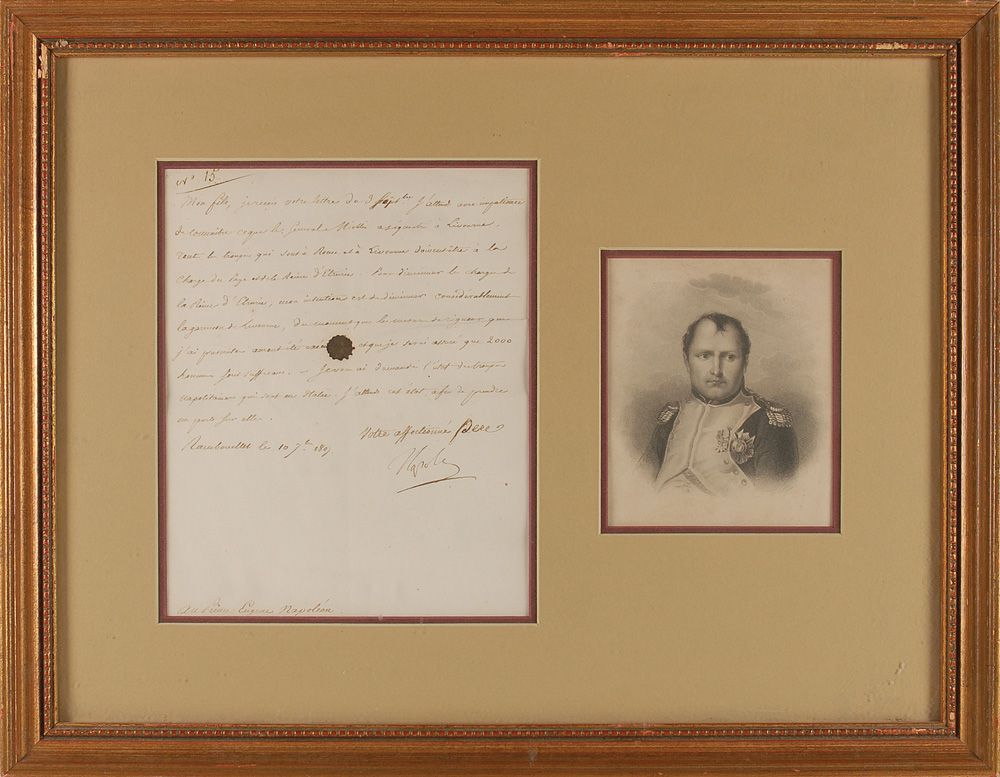 N° 15
Mon fils, je reçois votre lettre du 3 Sept.bre J'attend avec impatience
de connaitre ce que le Général Miollis a séquestré à Livourne.
toutes les troupes qui sont à Rome et à Livourne doivent être à la
charge du Pape et de la Reine d'Etrurie. Pour diminuer la charge de
la Reine d'Etrurie, mon intention est de diminuer considérablement
la garnison de Livourne, du moment que les mesures de rigueur que
j'ai prescrites auront été et que je serai assuré que 2000
hommes sont suffisans. ai demandé l'état des troupes
napolitaines qui sont en Italie. J'attend cet état afin de prendre
un parti sur elles.
Votre affectionné Père
Rambouillet le 10 7.bre 1807
Napole
Au Prince Eugene Napoléon